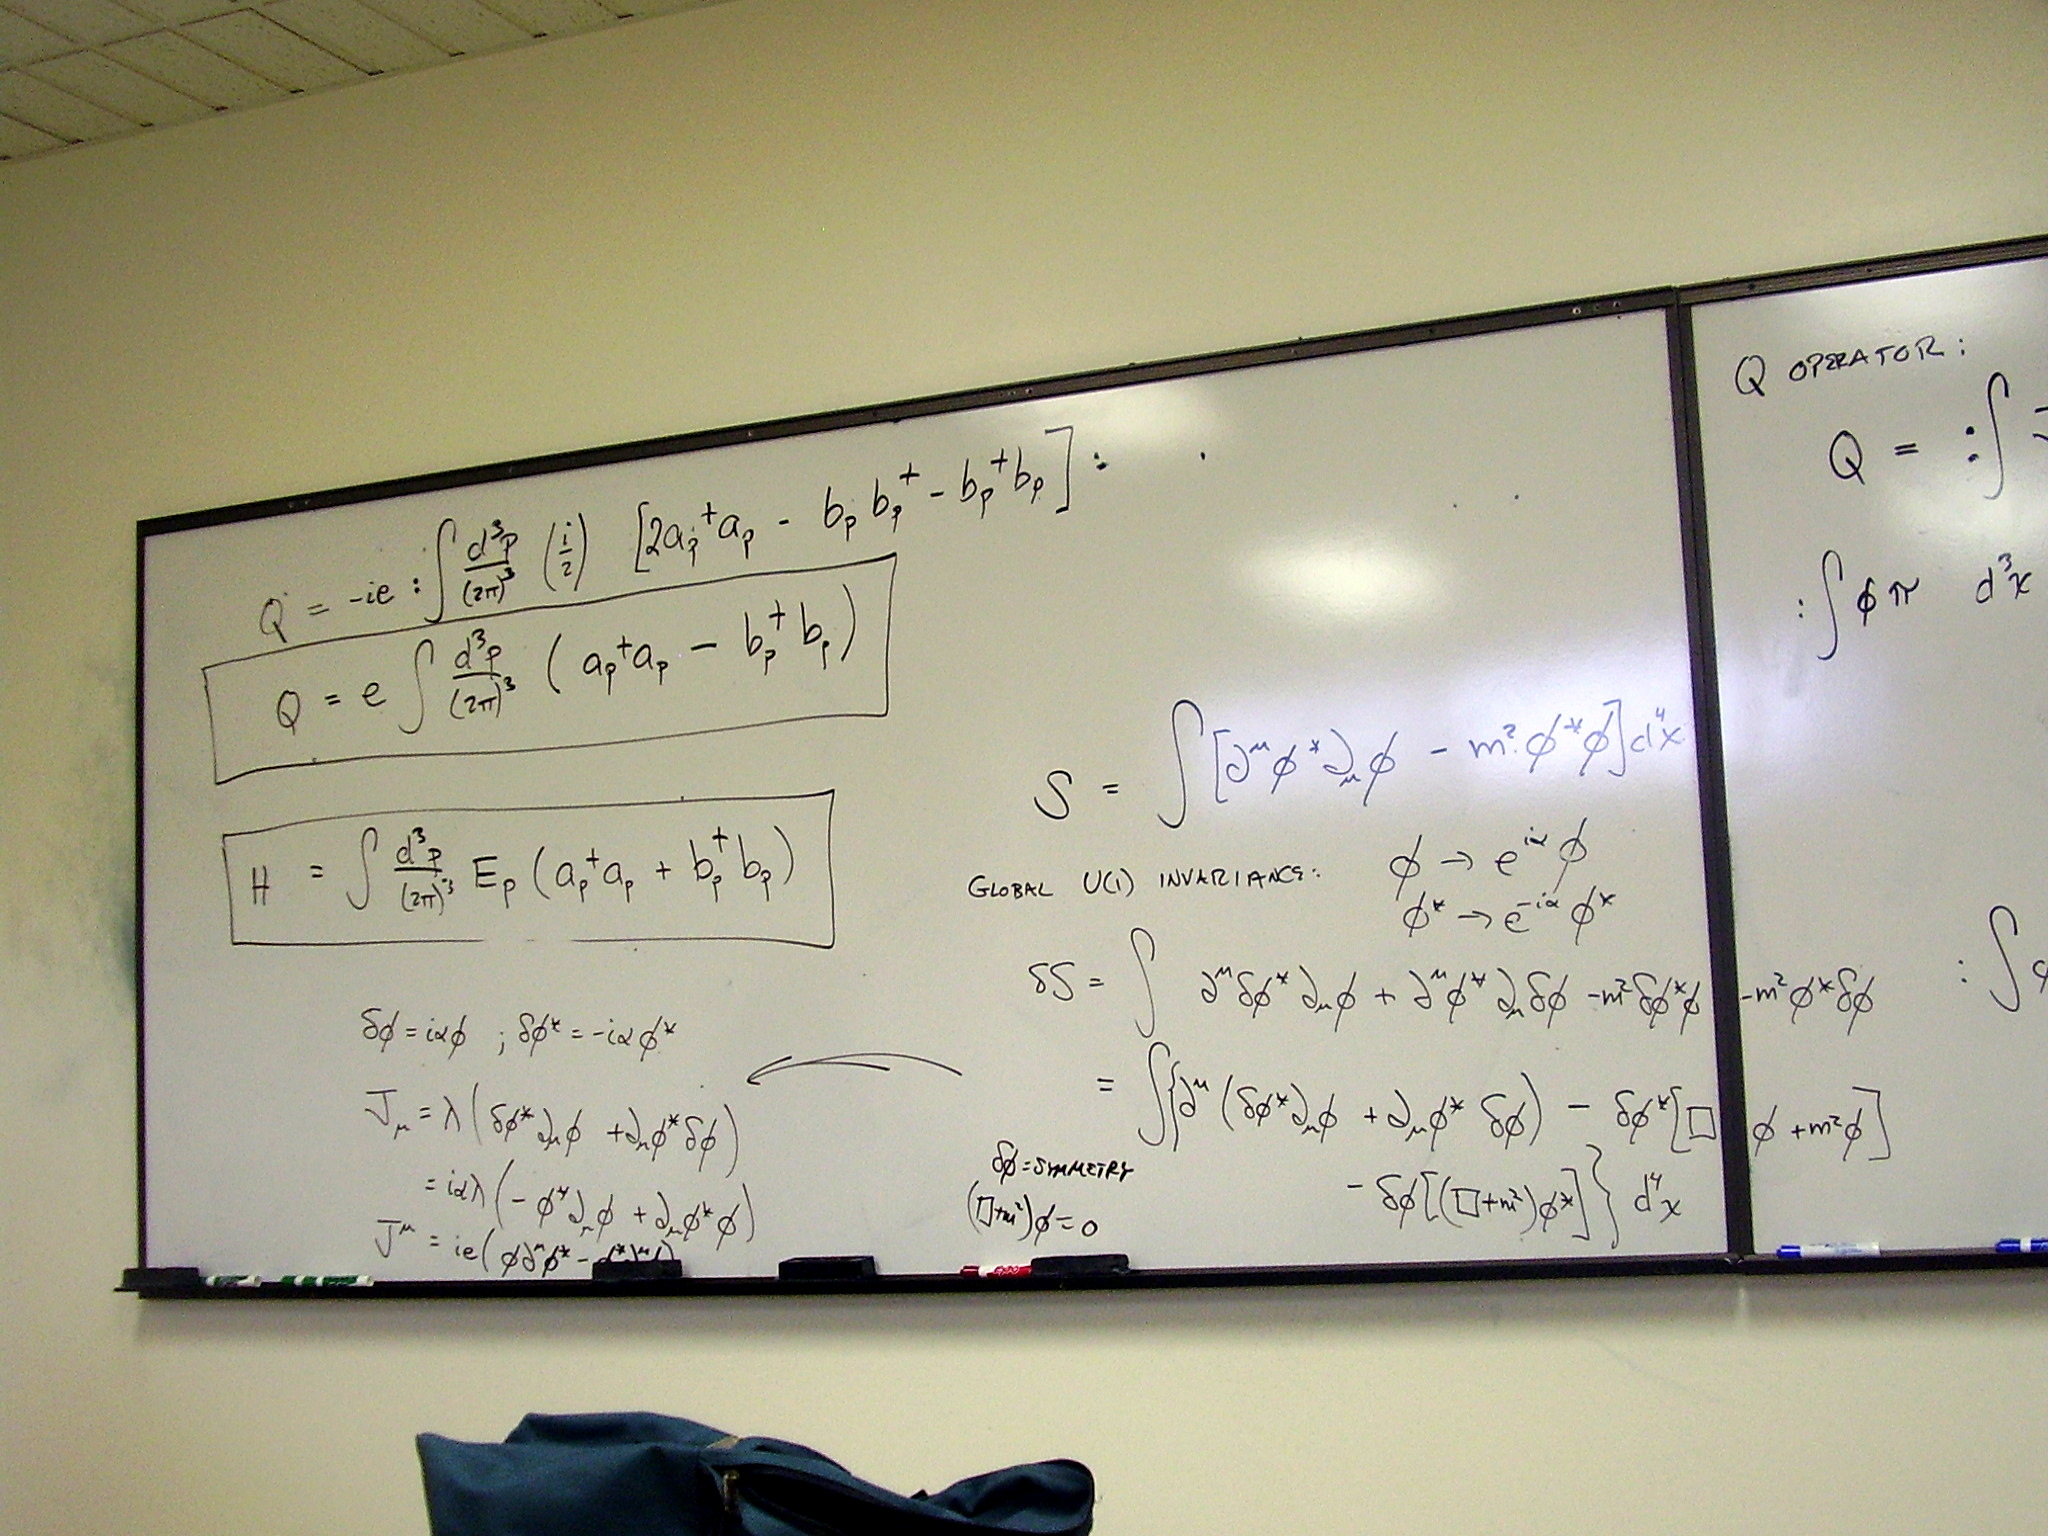 Q = -ie :∫ d³p/(2π)³ (i/2) [2aₚ⁺aₚ - bₚbₚ⁺ - bₚ⁺bₚ]:
Q = e ∫ d³p/(2π)³ (aₚ⁺aₚ - bₚ⁺bₚ)
H = ∫ d³p/(2π)³ Eₚ (aₚ⁺aₚ + bₚ⁺bₚ)
δϕ = iαϕ ; δϕ* = -iαϕ*
J_μ = λ(δϕ*∂_μϕ + ∂_μϕ*δϕ)
= iαλ(-ϕ*∂_μϕ + ∂_μϕ*ϕ)
J^μ = ie(ϕ∂^μϕ* -
S = ∫[∂^μϕ*∂_μϕ - m²ϕ*ϕ]d⁴x
GLOBAL U(1) INVARIANCE: ϕ → e^{iα}ϕ
ϕ* → e^{-iα}ϕ*
δS = ∫ ∂^μδϕ*∂_μϕ + ∂^μϕ*∂_μδϕ -m²δϕ*ϕ -m²ϕ*δϕ
= ∫{∂^μ(δϕ*∂_μϕ + ∂_μϕ*δϕ) - δϕ*[□ϕ + m²ϕ]
- δϕ[(□+m²)ϕ*]} d⁴x
δϕ = SYMMETRY
(□+m²)ϕ = 0
Q OPERATOR:
Q = :∫
:∫ϕπ d³x
:∫